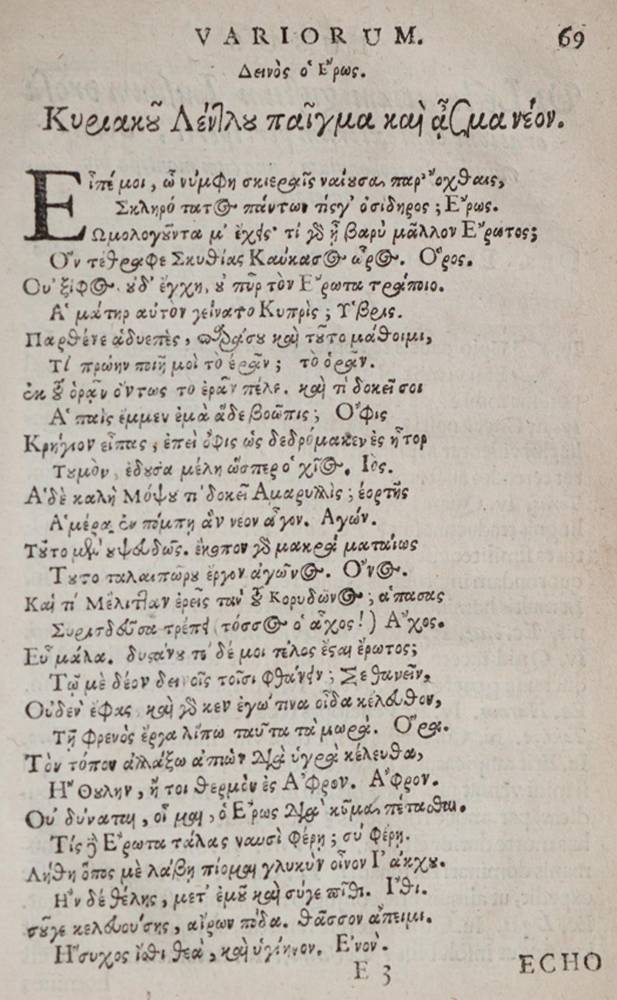 VARIORUM. 69
Δεινὸς ὁ Ἔρως.
Κυριακοῦ Λέντλου παῖγμα καὶ ᾆσμα νέον.
Εἰπέ μοι, ὦ νύμφη σκιεραῖς ναίουσα παρ' ὄχθαις,
Σκληρότατος πάντων τίς γ' ὁ σίδηρος; Ἔρως.
Ὡμολογοῦντα μ' ἔχεις· τί γὸ ἦ βαρὺ μᾶλλον Ἔρωτος;
Ὃν τέθραφε Σκυθίας Καύκασος ὦρος. Ὄρος.
Οὐ ξίφος οὐδ' ἔγχη, οὐ πῦρ τὸν Ἔρωτα τράποιο.
Ἁ μάτηρ αὐτὸν γείνατο Κυπρίς; Ὕβρις.
Παρθένε ἁδυεπὲς, φράσου καὶ τοῦτο μάθοιμι,
Τί πρώην ποιῆ μοὶ τὸ ἐρᾶν; τὸ ὁρᾶν.
ἐκ τοῦ ὁρᾷν ὄντως τὸ ἐρᾶν πέλε. καὶ τί δοκεῖ σοι
Ἁ παῖς ἔμμεν ἐμὰ ἅδε βοῶπις; Ὄφις
Κρήγιον εἶπας, ἐπεὶ ὄφις ὡς δεδρόμακεν ἐς ἦτορ
Τοὐμὸν, ἔδουσα μέλη ὥσπερ ὁ χιὸς. Ἰός.
Ἁ δὲ καλὴ Μόψου τί δοκεῖ Ἀμαρυλλὶς; ἑορτῆς
Ἁμέρα ἐν πόμπῃ ἂν νέον ἆγον. Ἀγών.
Τοῦτο μὲν οὐ ψευδῶς. ἔκηπον γὸ μακρὰ ματαίως
Τοῦτο ταλαιπώρου ἔργον ἀγῶνος. Ὄνος.
Καὶ τί Μέλιτταν ἐρεῖς ταν' τοῦ Κορυδῶνος; ἁπάσας
Συριτδεῦσα τρέπει (τόσσος ὁ ἆχος!) Ἄχος.
Εὖ μάλα. δυστάνου τί δέ μοι τέλος ἔσται ἔρωτος;
Τῷ μὲ δέον δεινοῖς τοῖσι φθάνειν; Σε θανεῖν,
Οὐδεν' ἔφας καὶ γὸ κεν ἐγώ τινα οἶδα κέλευθον,
Τῇ φρενὸς ἔργα λίπω ταῦτα τὰ μωρά. Ὅρα.
Τὸν τόπον ἀλλάξω ἀπιὼν διὰ ὑγρὰ κέλευθα,
Ἢ Θούλην, ἤ τοι θερμὸν ἐς Ἄφρον. Ἄφρον.
Οὐ δύναται, οἶ μαι, ὁ Ἔρως διὰ κῦμα πέταεθαι.
Τίς δὲ Ἔρωτα τάλας ναυσὶ φέρῃ; σὺ φέρῃ.
Λήθη ὅπος μὲ λάβῃ πίομαι γλυκὺν οἶνον Ἰάκχου.
Ἢν δὲ θέλῃς, μετ' ἐμοῦ καὶ σύγε πῖθι. Ἴθι.
σοῦγε κελευούσης, αἴρων πόδα. θᾶσσον ἄπειμι.
Ἥσυχος ἴσθι θεὰ, καὶ ὑγίηνον. Ἕνον.
E 3
ECHO